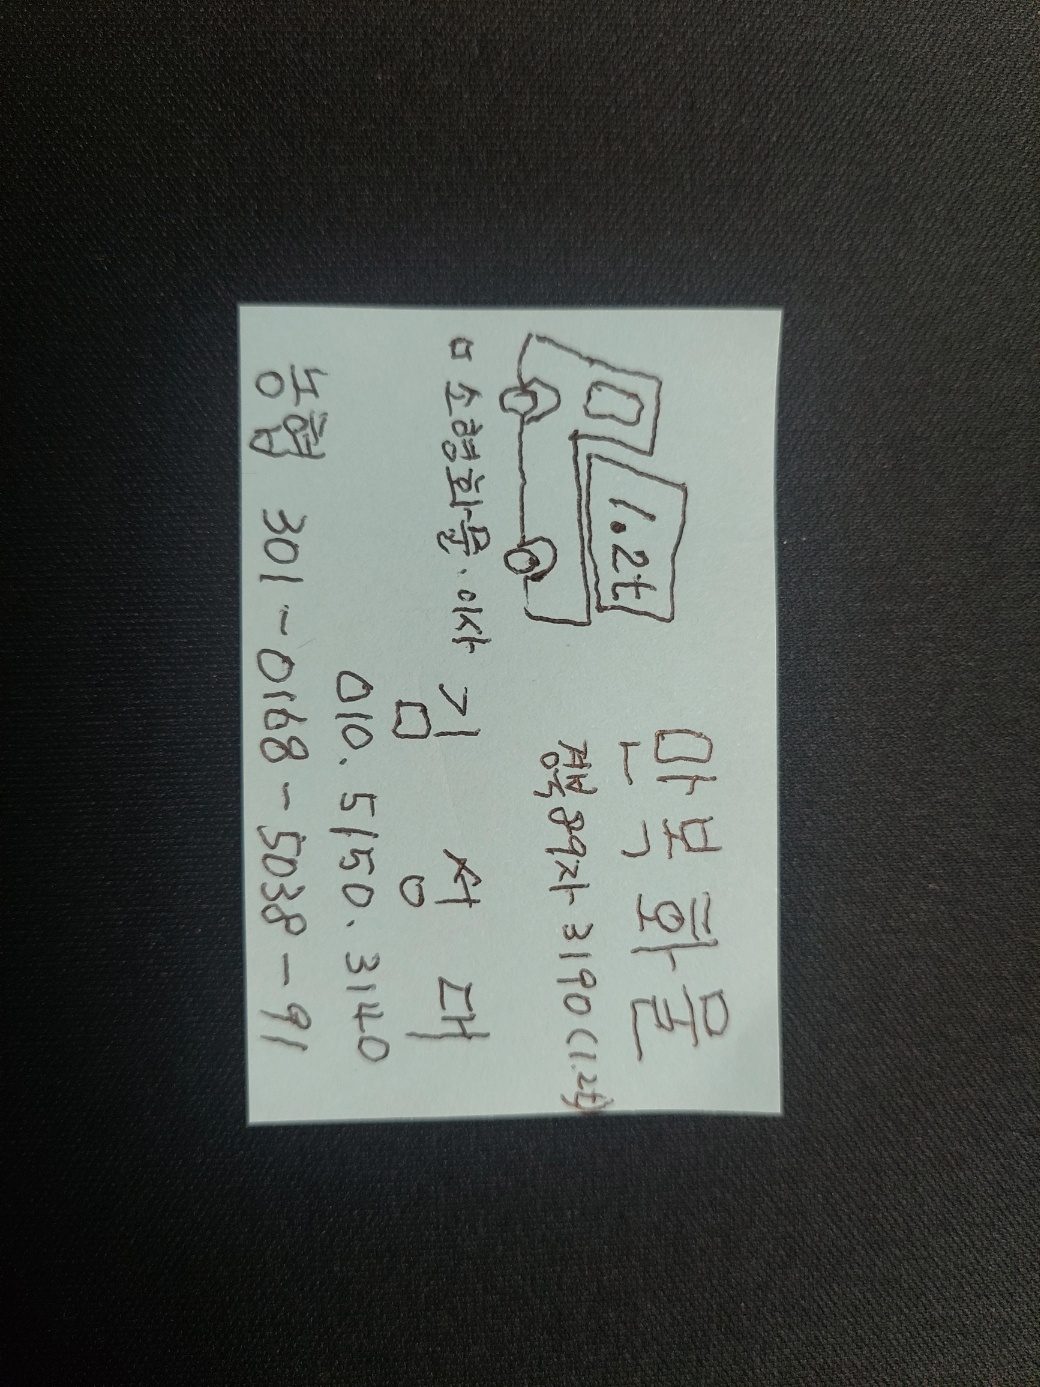 만복화물
1.2t
경북89자 3190 (1.2t)
ㅁ 소형화물·이사
김성대
010. 5150. 3140
농협 301-0168-5038-91